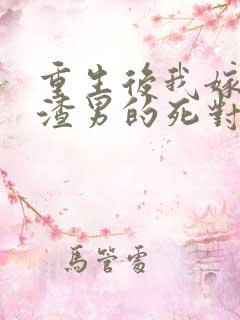 重生後我嫁
渣男的死對
馬管雷